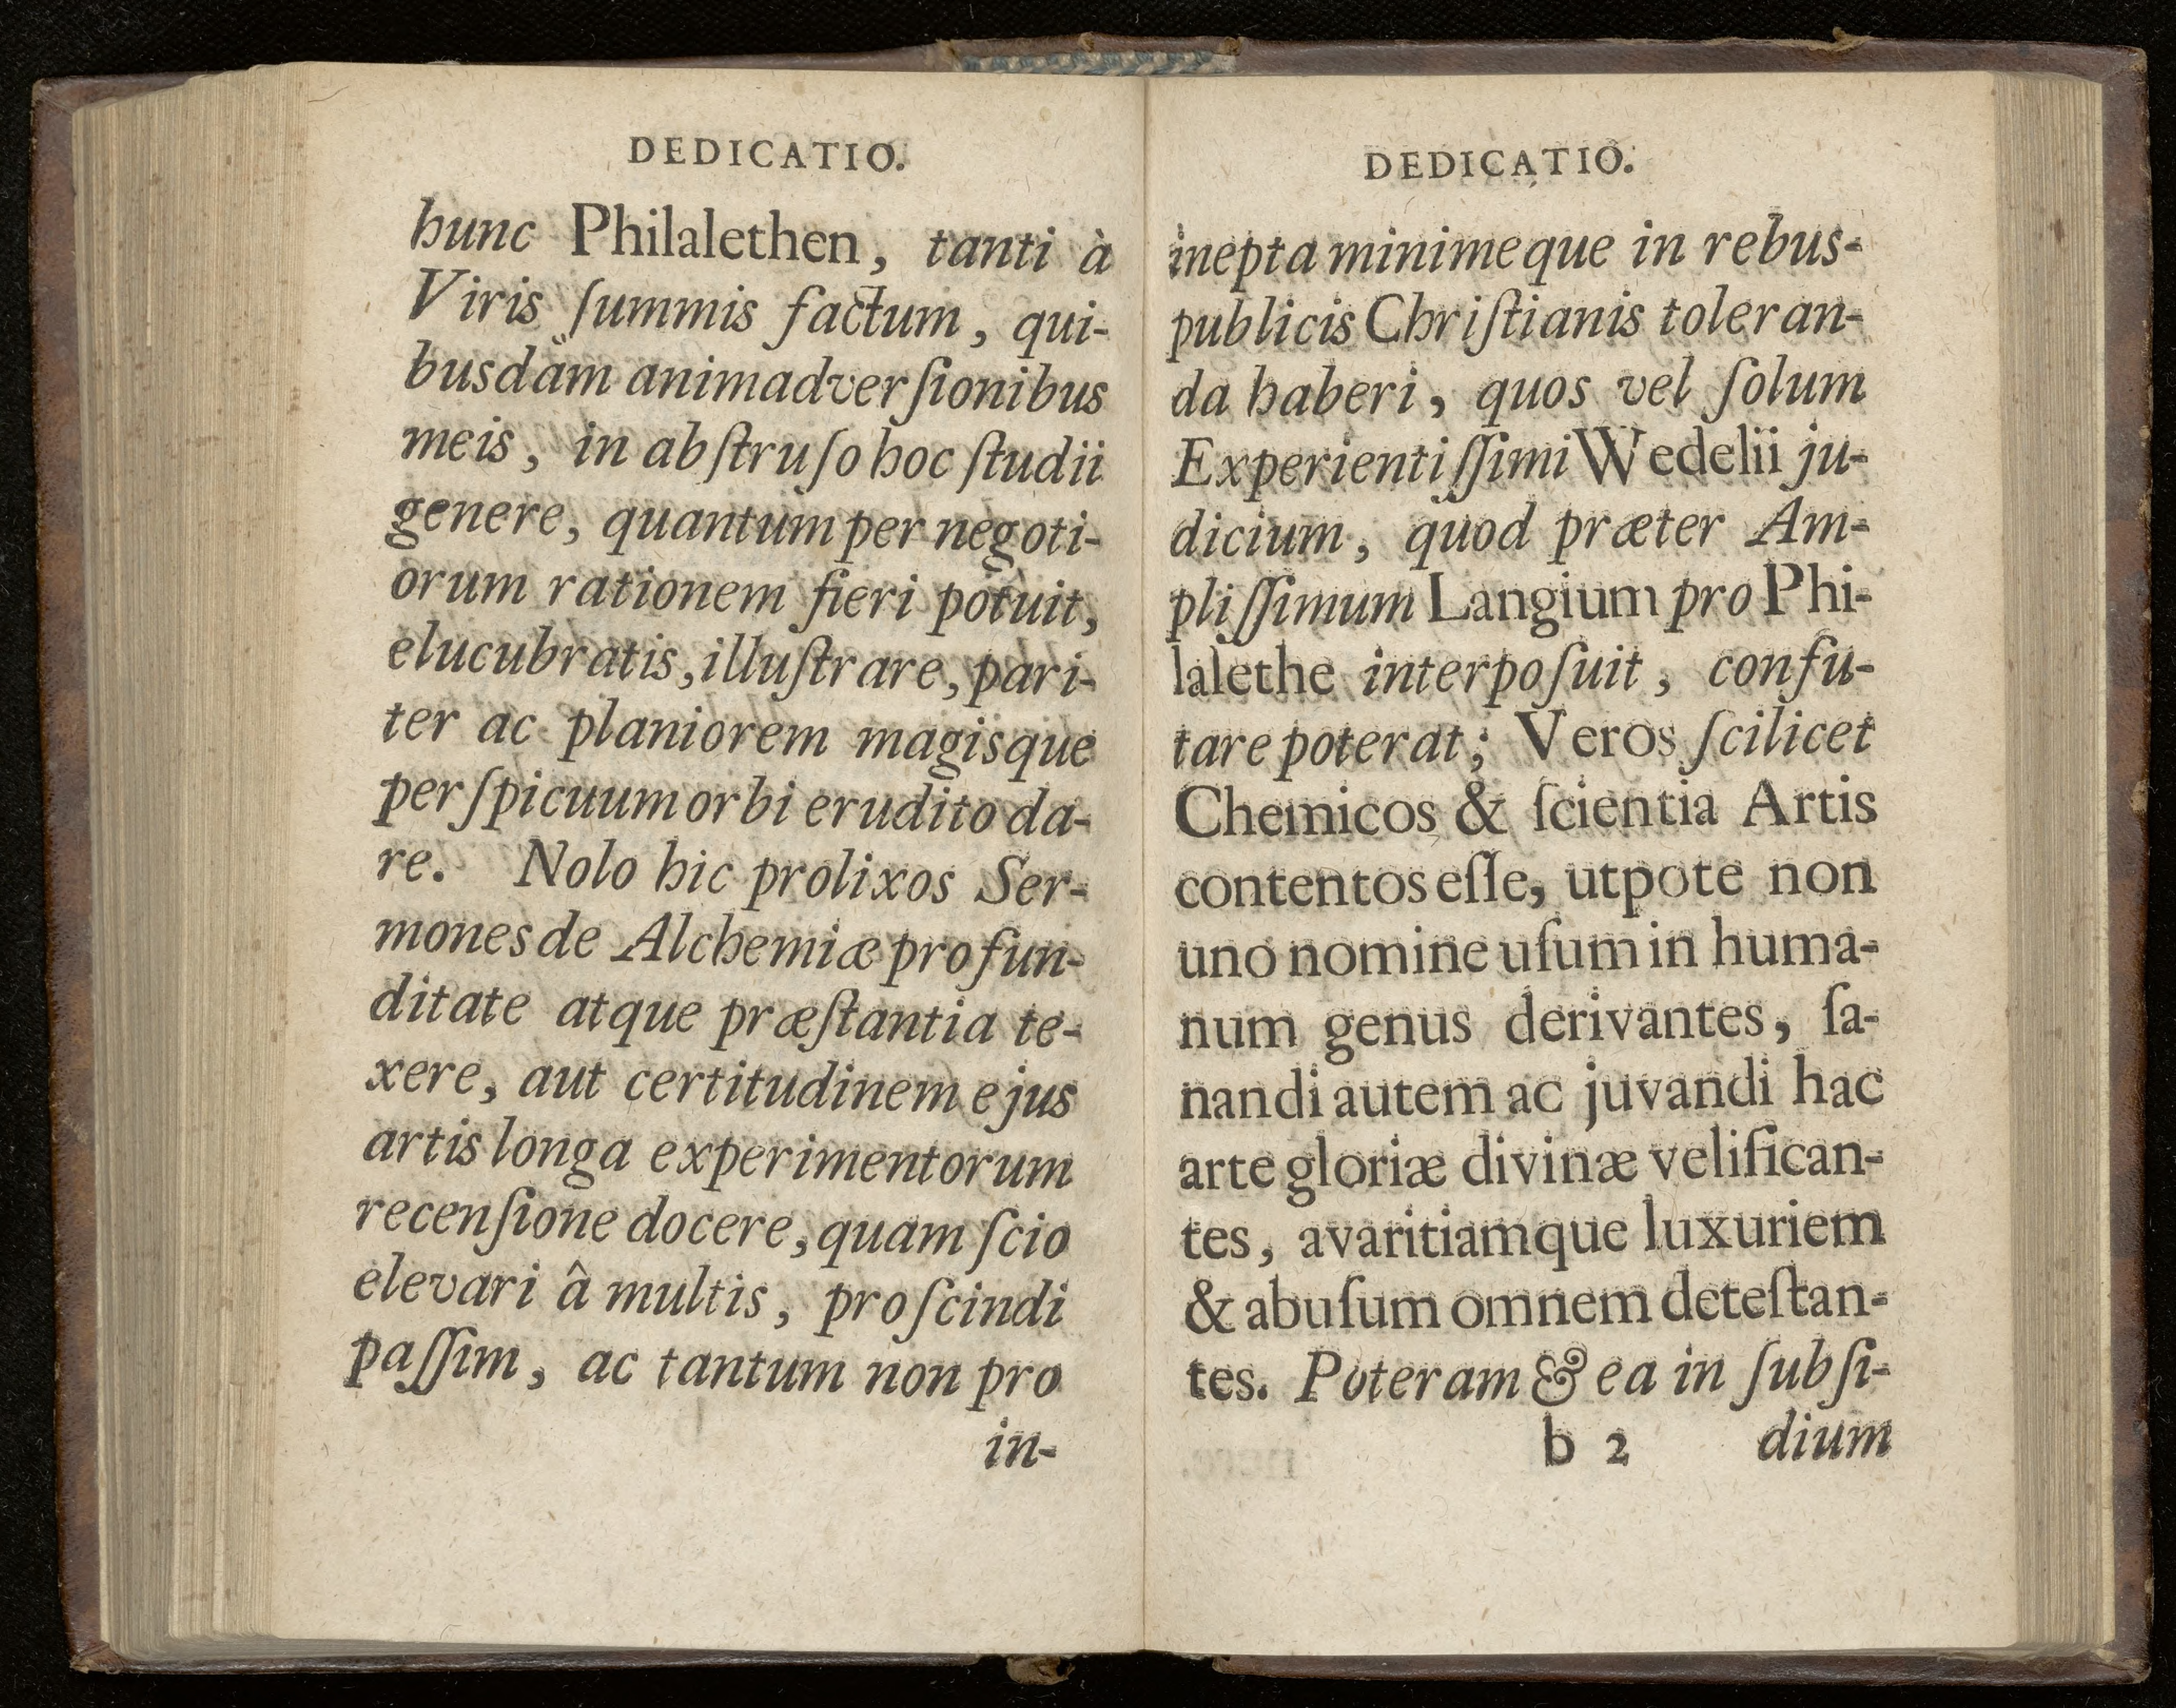 DEDICATIO.
hunc Philalethen, tanti à
Viris ſummis factum, qui-
busdam animadverſionibus
meis, in abſtruſo hoc ſtudii
genere, quantum per negoti-
orum rationem fieri potuit,
elucubratis, illuſtrare, pari-
ter ac planiorem magisque
perſpicuum orbi erudito da-
re. Nolo hic prolixos Ser-
mones de Alchemiæ profun-
ditate atque præſtantia te-
xere, aut certitudinem ejus
artis longa experimentorum
recenſione docere, quam ſcio
elevari â multis, proſcindi
paſſim, ac tantum non pro
in-
DEDICATIO.
inepta minimeque in rebus-
publicis Chriſtianis toleran-
da haberi, quos vel ſolum
Experientiſſimi Wedelii ju-
dicium, quod præter Am-
pliſſimum Langium pro Phi-
lalethe interpoſuit, confu-
tare poterat; Veros ſcilicet
Chemicos & ſcientia Artis
contentos eſſe, utpote non
uno nomine uſum in huma-
num genus derivantes, ſa-
nandi autem ac juvandi hac
arte gloriæ divinæ velifican-
tes, avaritiamque luxuriem
& abuſum omnem deteſtan-
tes. Poteram & ea in ſubſi-
b 2 dium